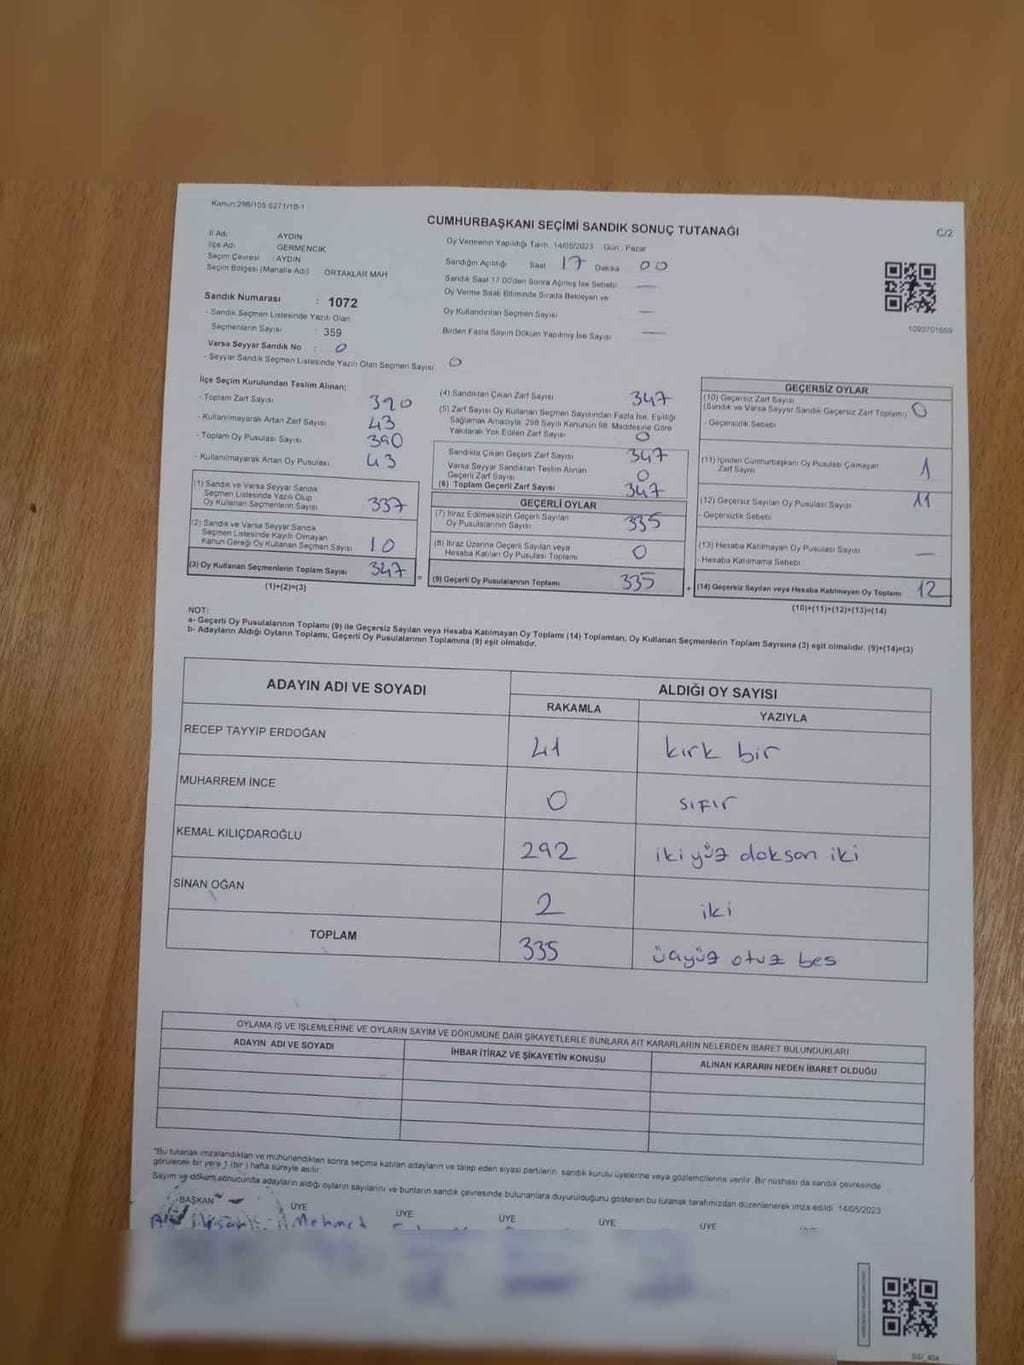 Kanun:298/105,6271/18-1
CUMHURBAŞKANI SEÇİMİ SANDIK SONUÇ TUTANAĞI
C/2
İl Adı AYDIN
İlçe Adı GERMENCİK
Seçim Çevresi : AYDIN
Seçim Bölgesi (Mahalle Adı) ORTAKLAR MAH
Oy Vermenin Yapıldığı Tarih 14/05/2023 Gün : Pazar
Sandığın Açıldığı Saat 17 Dakika 00
Sandık Saat 17:00'den Sonra Açılmış İse Sebebi —
Oy Verme Saati Bitiminde Sırada Bekleyen ve
Oy Kullandırılan Seçmen Sayısı —
Birden Fazla Sayım Döküm Yapılmış İse Sayısı —
1093701669
Sandık Numarası : 1072
- Sandık Seçmen Listesinde Yazılı Olan
Seçmenlerin Sayısı : 359
Varsa Seyyar Sandık No : 0
- Seyyar Sandık Seçmen Listesinde Yazılı Olan Seçmen Sayısı 0
İlçe Seçim Kurulundan Teslim Alınan;
- Toplam Zarf Sayısı 390
- Kullanılmayarak Artan Zarf Sayısı 43
- Toplam Oy Pusulası Sayısı 390
- Kullanılmayarak Artan Oy Pusulası 43
(1) Sandık ve Varsa Seyyar Sandık
Seçmen Listesinde Yazılı Olup
Oy Kullanan Seçmenlerin Sayısı 337
(2) Sandık ve Varsa Seyyar Sandık
Seçmen Listesinde Kayıtlı Olmayan
Kanun Gereği Oy Kullanan Seçmen Sayısı 10
(3) Oy Kullanan Seçmenlerin Toplam Sayısı 347
(1)+(2)=(3)
(4) Sandıktan Çıkan Zarf Sayısı 347
(5) Zarf Sayısı Oy Kullanan Seçmen Sayısından Fazla İse, Eşitliği
Sağlamak Amacıyla, 298 Sayılı Kanunun 98. Maddesine Göre
Yakılarak Yok Edilen Zarf Sayısı 0
Sandıkta Çıkan Geçerli Zarf Sayısı 347
Varsa Seyyar Sandıktan Teslim Alınan
Geçerli Zarf Sayısı 0
(6) Toplam Geçerli Zarf Sayısı 347
GEÇERLİ OYLAR
(7) İtiraz Edilmeksizin Geçerli Sayılan
Oy Pusulalarının Sayısı 335
(8) İtiraz Üzerine Geçerli Sayılan veya
Hesaba Katılan Oy Pusulası Toplamı 0
= (9) Geçerli Oy Pusulalarının Toplamı 335
GEÇERSİZ OYLAR
(10) Geçersiz Zarf Sayısı 0
(Sandık ve Varsa Seyyar Sandık Geçersiz Zarf Toplamı)
- Geçersizlik Sebebi
(11) İçinden Cumhurbaşkanı Oy Pusulası Çıkmayan
Zarf Sayısı 1
(12) Geçersiz Sayılan Oy Pusulası Sayısı 11
- Geçersizlik Sebebi
(13) Hesaba Katılmayan Oy Pusulası Sayısı —
- Hesaba Katılmama Sebebi
+ (14) Geçersiz Sayılan veya Hesaba Katılmayan Oy Toplamı 12
(10)+(11)+(12)+(13)=(14)
NOT:
a- Geçerli Oy Pusulalarının Toplamı (9) ile Geçersiz Sayılan veya Hesaba Katılmayan Oy Toplamı (14) Toplamları, Oy Kullanan Seçmenlerin Toplam Sayısına (3) eşit olmalıdır. (9)+(14)=(3)
b- Adayların Aldığı Oyların Toplamı, Geçerli Oy Pusulalarının Toplamına (9) eşit olmalıdır.
ADAYIN ADI VE SOYADI ALDIĞI OY SAYISI
RAKAMLA YAZIYLA
RECEP TAYYİP ERDOĞAN 41 kırk bir
MUHARREM İNCE 0 sıfır
KEMAL KILIÇDAROĞLU 292 ikiyüz doksan iki
SİNAN OĞAN 2 iki
TOPLAM 335 üçyüz otuz bes
OYLAMA İŞ VE İŞLEMLERİNE VE OYLARIN SAYIM VE DÖKÜMÜNE DAİR ŞİKAYETLERLE BUNLARA AİT KARARLARIN NELERDEN İBARET BULUNDUKLARI
ADAYIN ADI VE SOYADI İHBAR İTİRAZ VE ŞİKAYETİN KONUSU ALINAN KARARIN NEDEN İBARET OLDUĞU
"Bu tutanak imzalandıktan ve mühürlendikten sonra seçime katılan adayların ve talep eden siyasi partilerin sandık kurulu üyelerine veya gözlemcilerine verilir. Bir nüshası da sandık çevresinde
görülecek bir yere 1 (bir ) hafta süreyle asılır
Sayım ve döküm sonucunda adayların aldığı oyların sayılarını ve bunların sandık çevresinde bulunanlara duyurulduğunu gösteren bu tutanak tarafımızdan düzenlenerek imza edildi 14/05/2023
BAŞKAN ÜYE ÜYE ÜYE ÜYE ÜYE
Mehmet